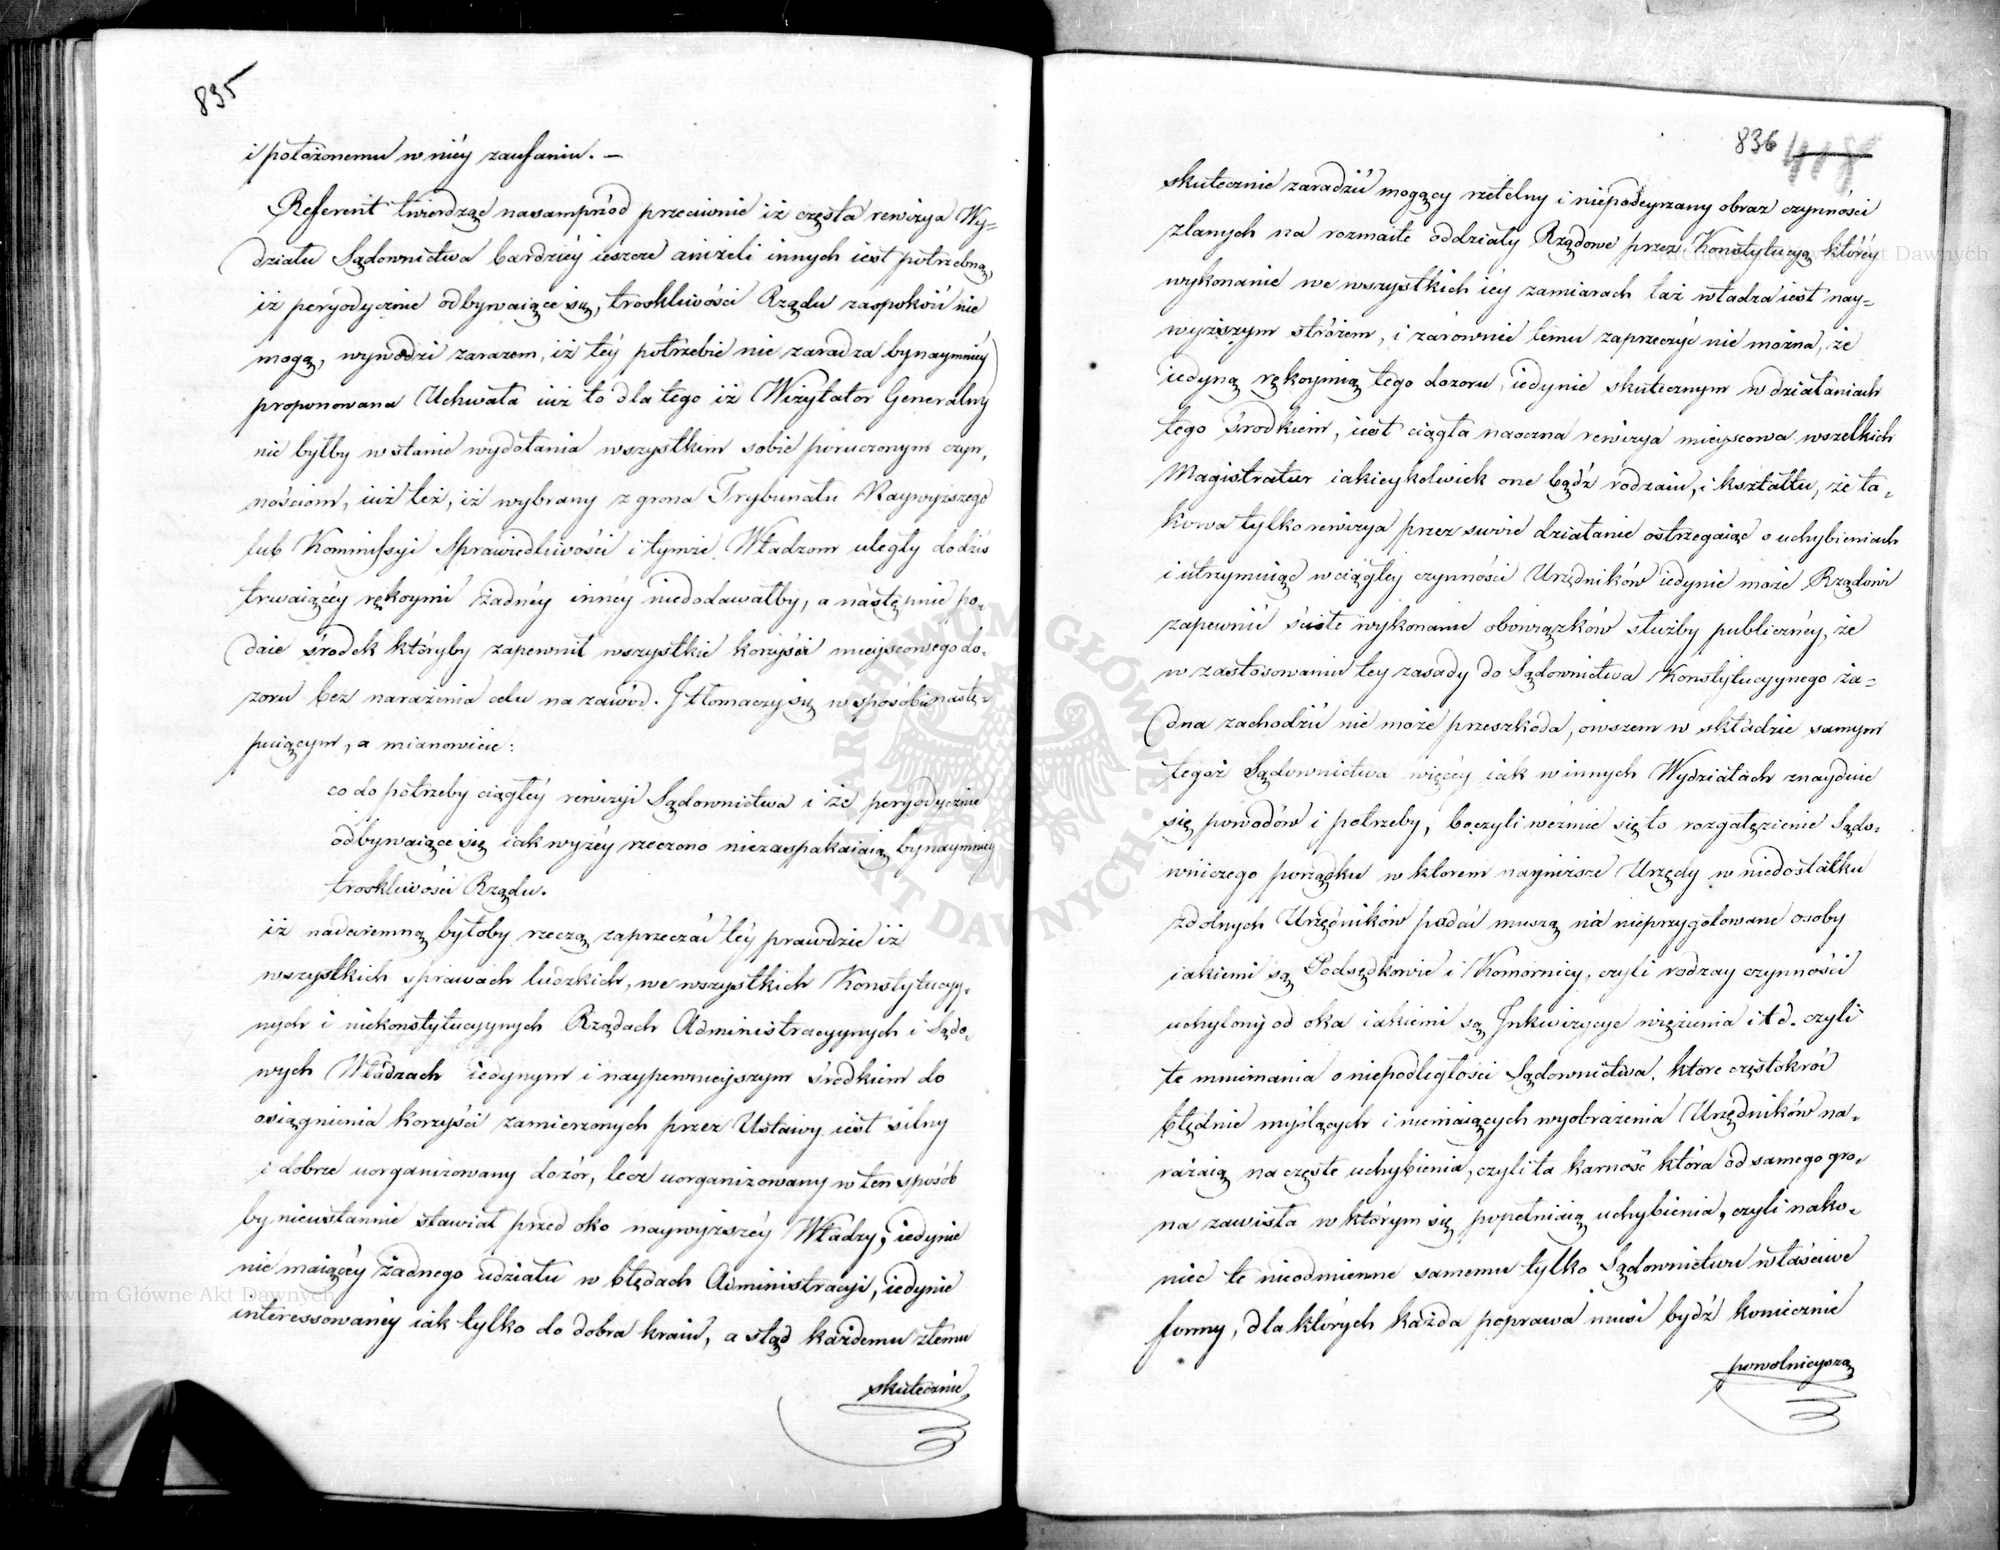 835
i położonemu w niéy zaufaniu. —
Referent twierdząc nasamprzód przeciwnie iż częsta rewizya Wy=
działu Sądownictwa bardziéy ieszcze aniżeli innych iest potrzebną,
iż peryodycznie odbywaiące się, troskliwości Rządu zaspokoić nie
mogą, wywodzi zarazem, iż téy potrzebie nie zaradza bynaymniéy
proponowana Uchwała iuż to dla tego iż Wizytator Generalny
nie byłby w stanie wydołania wszystkim sobie poruczonym czyn,
nościom, iuż też, iż wybrany z grona Trybunału Naywyższego
lub Kommissyi Sprawiedliwości i tymże Władzom uległy do dziś
trwaiącéy rękoymi żadnéy innéy niedodawałby, a następnie po,
daie środek któryby zapewnił wszystkie korzyści mieyscowego do,
zoru bez narażenia celu na zawód. Itłomaczy się w sposobie nastę,
puiącym, a mianowicie:
co do potrzeby ciągłéy rewizyi Sądownictwa i że peryodycznie
odbywaiące się iak wyżéy rzeczono niezaspakaiaią bynaymniéy
troskliwości Rządu.
iż nadaremną byłoby rzeczą zaprzeczać téy prawdzie iż
wszystkich sprawach ludzkich, we wszystkich Konstytucyy,
nych i niekonstytucyynych Rządach Administracyynych i Sądo,
wych Władzach iedynym i naypewnieyszym środkiem do
osiągnienia korzyści zamierzonych przez Ustawy iest silny
i dobrze uorganizowany dozór, lecz uorganizowany w ten sposób
by nieustannie stawiał przed oko naywyższéy Władzy, iedynie
nie maiącéy żadnego udziału w błędach Administracyi, iedynie
interessowanéy iak tylko do dobra kraiu, a stąd każdemu złemu
skutecznie
836
skutecznie zaradzić mogący rzetelny i niepodeyrzany obraz czynności
zlanych na rozmaite oddziały Rządowe przez Konstytucyą któréy
wykonanie we wszystkich iéy zamiarach taż władza iest nay=
wyższym stróżem, i zarównie temu zaprzeczyć nie można, że
iedyną rękoymią tego dozoru, iedynie skutecznym w działaniach
tego środkiem, iest ciągła naoczna rewizya mieyscowa wszelkich
Magistratur iakieykolwiek one bądź rodzaiu, i kształtu, że ta,
kowa tylko rewizya przez swoie działanie ostrzegaiąc o uchybieniach
i utrzymuiąc w ciągłey czynności Urzędników iedynie może Rządowi
zapewnić ścisłe wykonanie obowiązków służby publicznéy, że
w zastosowaniu téy zasady do Sądownictwa Konstytucyynego ża=
dna zachodzić nie może przeszkoda, owszem w składzie samym
tegoż Sądownictwa więcéy iak w innych Wydziałach znayduie
się powodów i potrzeby, bo czyli weźmie się to rozgałęzienie Sądo,
wniczego porządku w którem nayniższe Urzędy w niedostatku
zdolnych Urzędników padać muszą na nieprzygotowane osoby
iakiemi są Podsędkowie i Komornicy, czyli rodzay czynności
uchylony od oka iakiemi są Inkwizycye więzienia i t d. czyli
te mniemania o niepodległości Sądownictwa, które częstokroć
błędnie myślących i niemaiących wyobrażenia Urzędników na,
rażaią na częste uchybienia, czyli ta karność która od samego gro,
na zawisła w którym się popełniaią uchybienia, czyli nako,
niec te nieodmienne samemu tylko Sądownictwu właściwe
formy, dla których każda poprawa musi bydź koniecznie
powolnieyszą